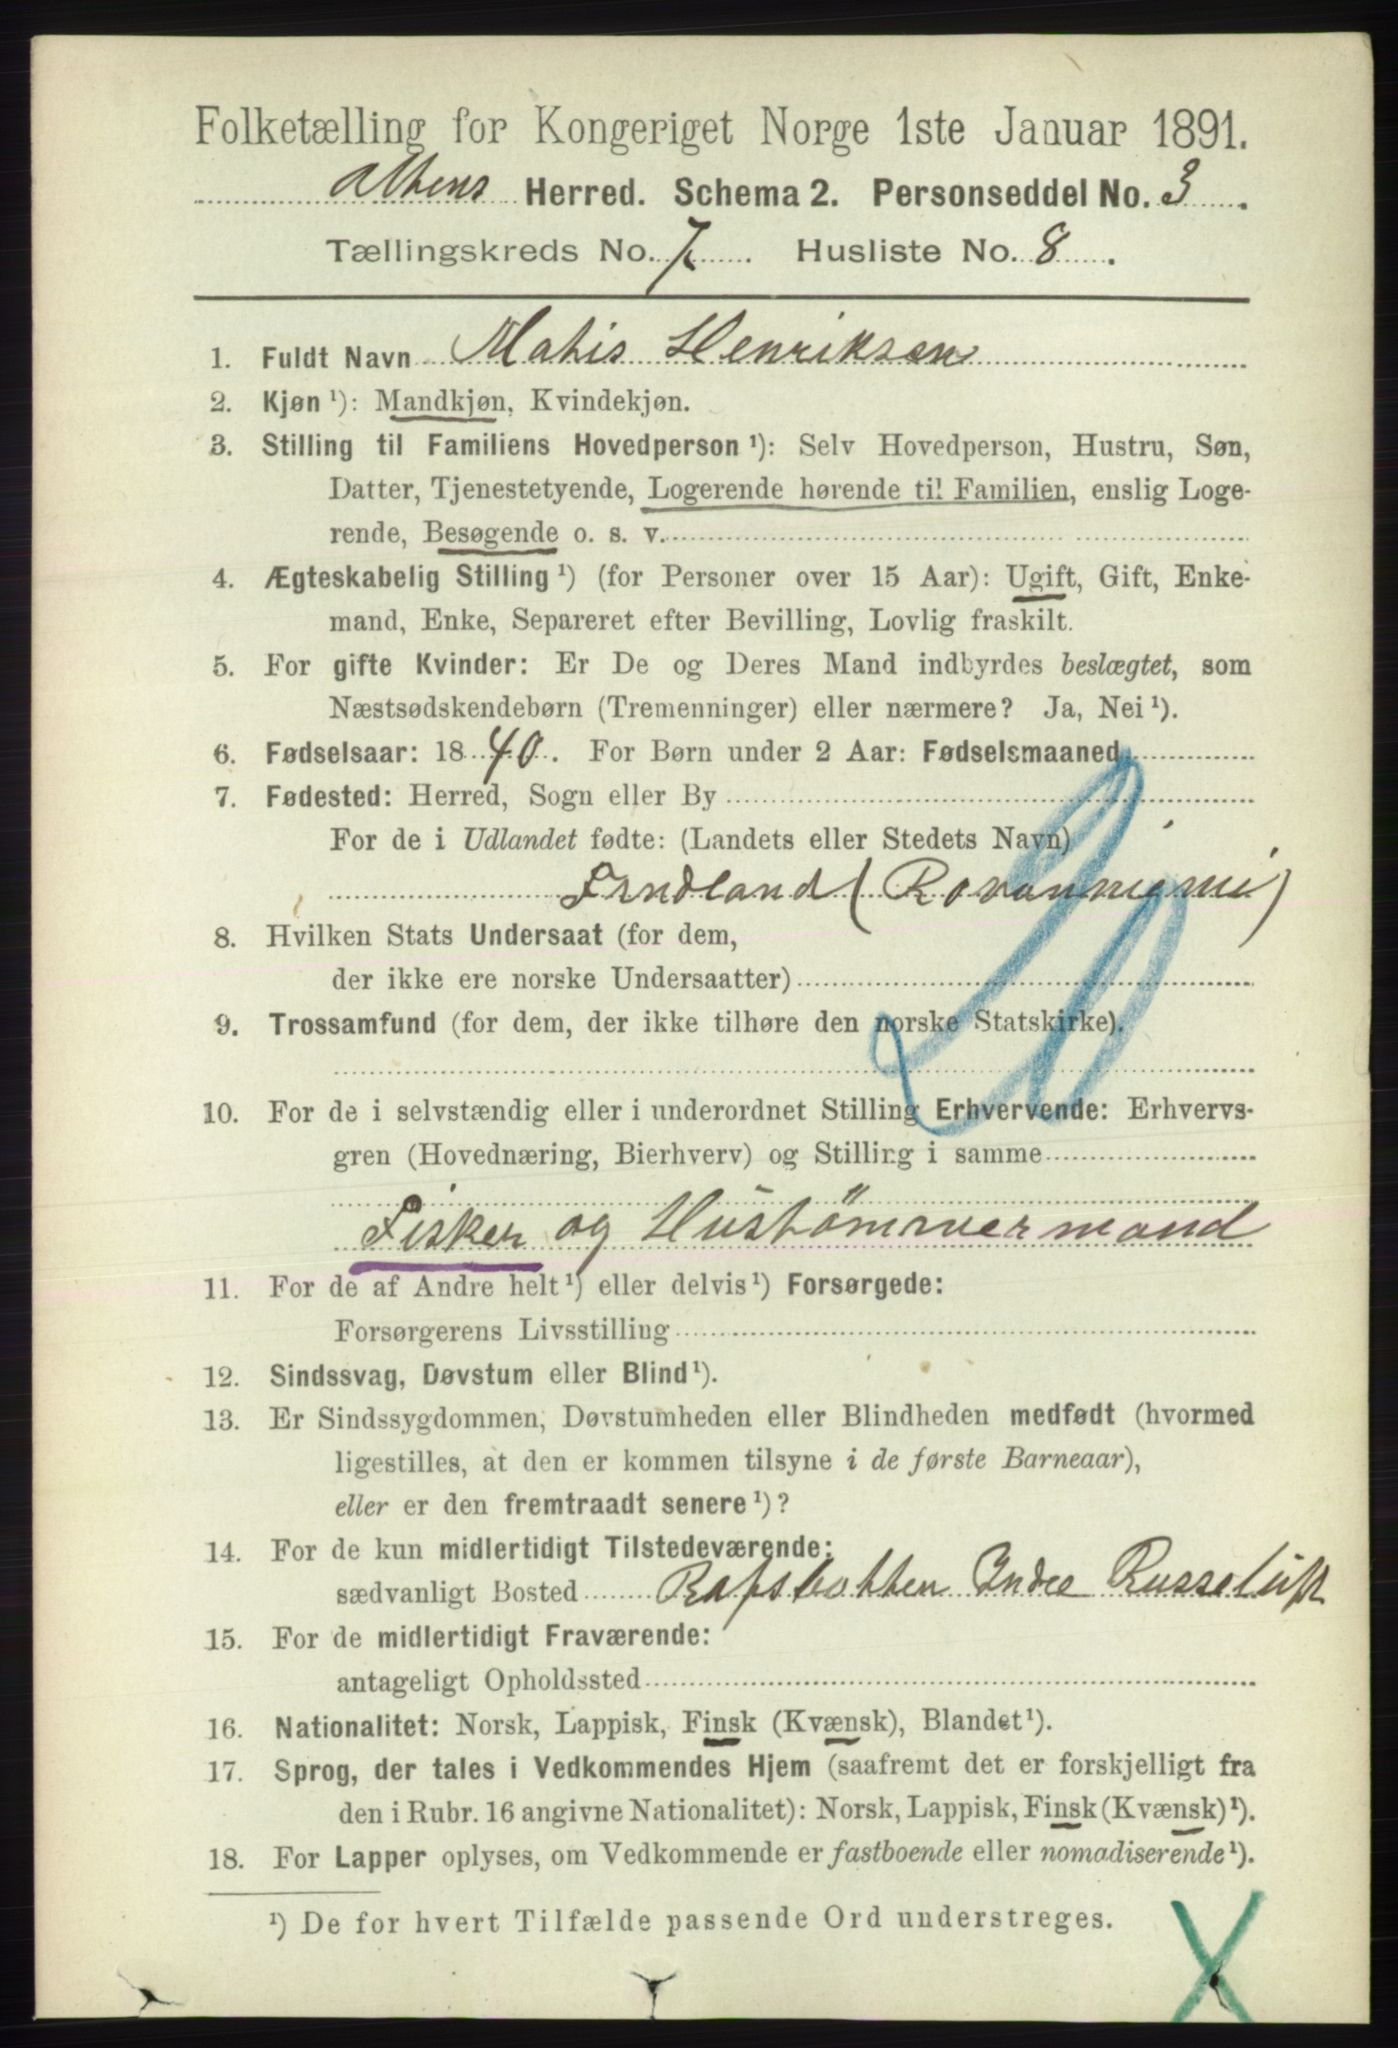 Folketælling for Kongeriget Norge 1ste Januar 1891.
Altens Herred. Schema 2. Personseddel No. 3.
Tællingskreds No. 7. Husliste No. 8.
1. Fuldt Navn Matis Henriksen
2. Kjøn ¹): Mandkjøn, Kvindekjøn.
3. Stilling til Familiens Hovedperson ¹): Selv Hovedperson, Hustru, Søn,
Datter, Tjenestetyende, Logerende hørende til Familien, enslig Loge-
rende, Besøgende o. s. v.
4. Ægteskabelig Stilling ¹) (for Personer over 15 Aar): Ugift, Gift, Enke-
mand, Enke, Separeret efter Bevilling, Lovlig fraskilt.
5. For gifte Kvinder: Er De og Deres Mand indbyrdes beslægtet, som
Næstsødskendebørn (Tremenninger) eller nærmere? Ja, Nei ¹).
6. Fødselsaar: 1840. For Børn under 2 Aar: Fødselsmaaned
7. Fødested: Herred, Sogn eller By
For de i Udlandet fødte: (Landets eller Stedets Navn)
Findland (Rovanniemi)
8. Hvilken Stats Undersaat (for dem,
der ikke ere norske Undersaatter)
9. Trossamfund (for dem, der ikke tilhøre den norske Statskirke).
10. For de i selvstændig eller i underordnet Stilling Erhvervende: Erhvervs-
gren (Hovednæring, Bierhverv) og Stilling i samme
Fisker og Hustømmermand
11. For de af Andre helt ¹) eller delvis ¹) Forsørgede:
Forsørgerens Livsstilling
12. Sindssvag, Døvstum eller Blind ¹).
13. Er Sindssygdommen, Døvstumheden eller Blindheden medfødt (hvormed
ligestilles, at den er kommen tilsyne i de første Barneaar),
eller er den fremtraadt senere ¹)?
14. For de kun midlertidigt Tilstedeværende:
sædvanligt Bosted Rafsbotten Indre Russeluft
15. For de midlertidigt Fraværende:
antageligt Opholdssted
16. Nationalitet: Norsk, Lappisk, Finsk (Kvænsk), Blandet ¹).
17. Sprog, der tales i Vedkommendes Hjem (saafremt det er forskjelligt fra
den i Rubr. 16 angivne Nationalitet): Norsk, Lappisk, Finsk (Kvænsk) ¹).
18. For Lapper oplyses, om Vedkommende er fastboende eller nomadiserende ¹).
¹) De for hvert Tilfælde passende Ord understreges.